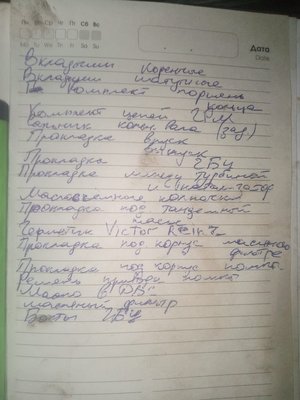 Пн Вт Ср Чт Пт Сб Вс
Mo Tu We Th Fr Sa Su
Дата
Date
Вкладыши коренные
Вкладыши шатунные
Комплект поршень
кольца
Комплект цепей ГРМ
Сальник колен. вала (зад)
Прокладка впуск
Прокладка ГБЦ
Прокладка между турбиной
и
Маслосъемные колпачки
Прокладка под
Герметик Victor Reinz
Прокладка под корпус масляного
фильтра
Прокладка под корпус помпы
Ремень привода помпы
Масло в ДВС
масляный фильтр
Болты ГБЦ